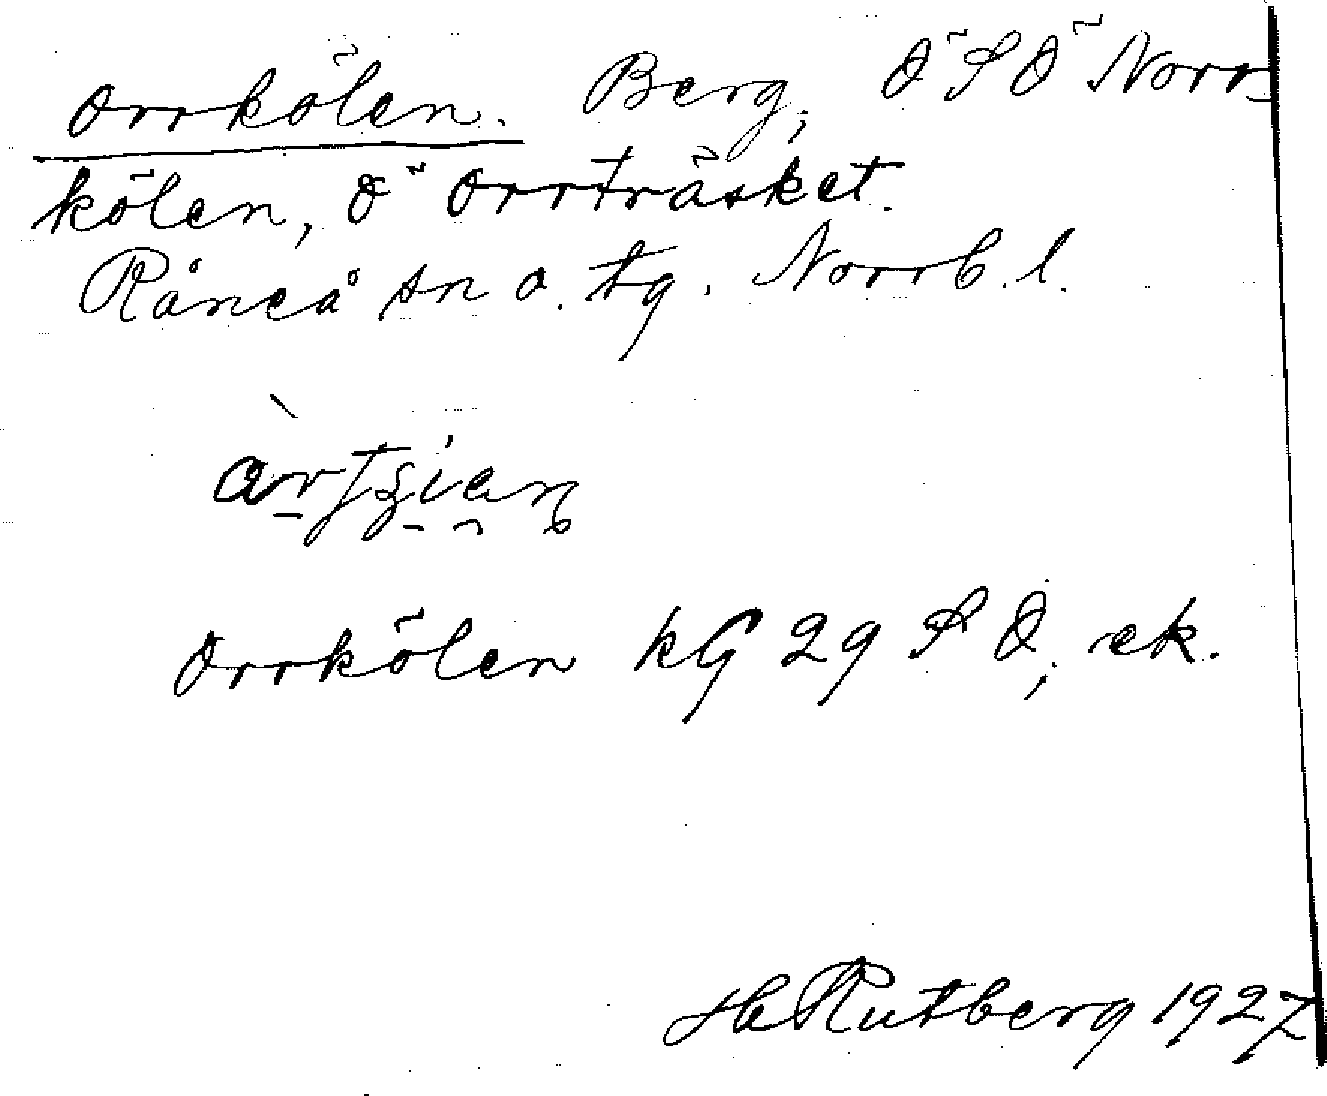 Orrkölen. Berg, Ö S Ö Norr-
kölen, Ö Orrträsket.
Råneå sn o. tg. Norrb. l.
Orrkölen kG 29 S O, ek.
H Rutberg 1927